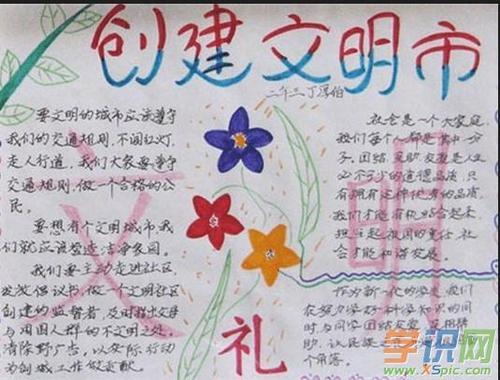 创建文明市
二年三 丁
要文明的城市应该遵守
我们的交通规则,不闯红灯,
走人行道,我们大家要遵守
交通规则,做一个合格的公
民。
要想有个文明城市我
们就应该营造洁净家园。
我们要主动走进社区
发放倡议书,做一个文明社区
创建的监督者,及时指出父母
与周围人群的不文明之处,
清除野广告,以实际行动
为创城工作做贡献。
社会是一个大家庭,
我们每个人都是其中一分
子,团结、互助、友爱是人生
必不可少的道德品质,只
有拥有这样优秀的品质,
我们才能有机结合起来,
担起起祖国的重任,社
会才能和谐发展。
作为新一代的学 我们
在努力学好科学知识的同
时与同学团结友爱,互相帮
助,认
个角落。
文
明
礼
学识网
www.XSpic.com